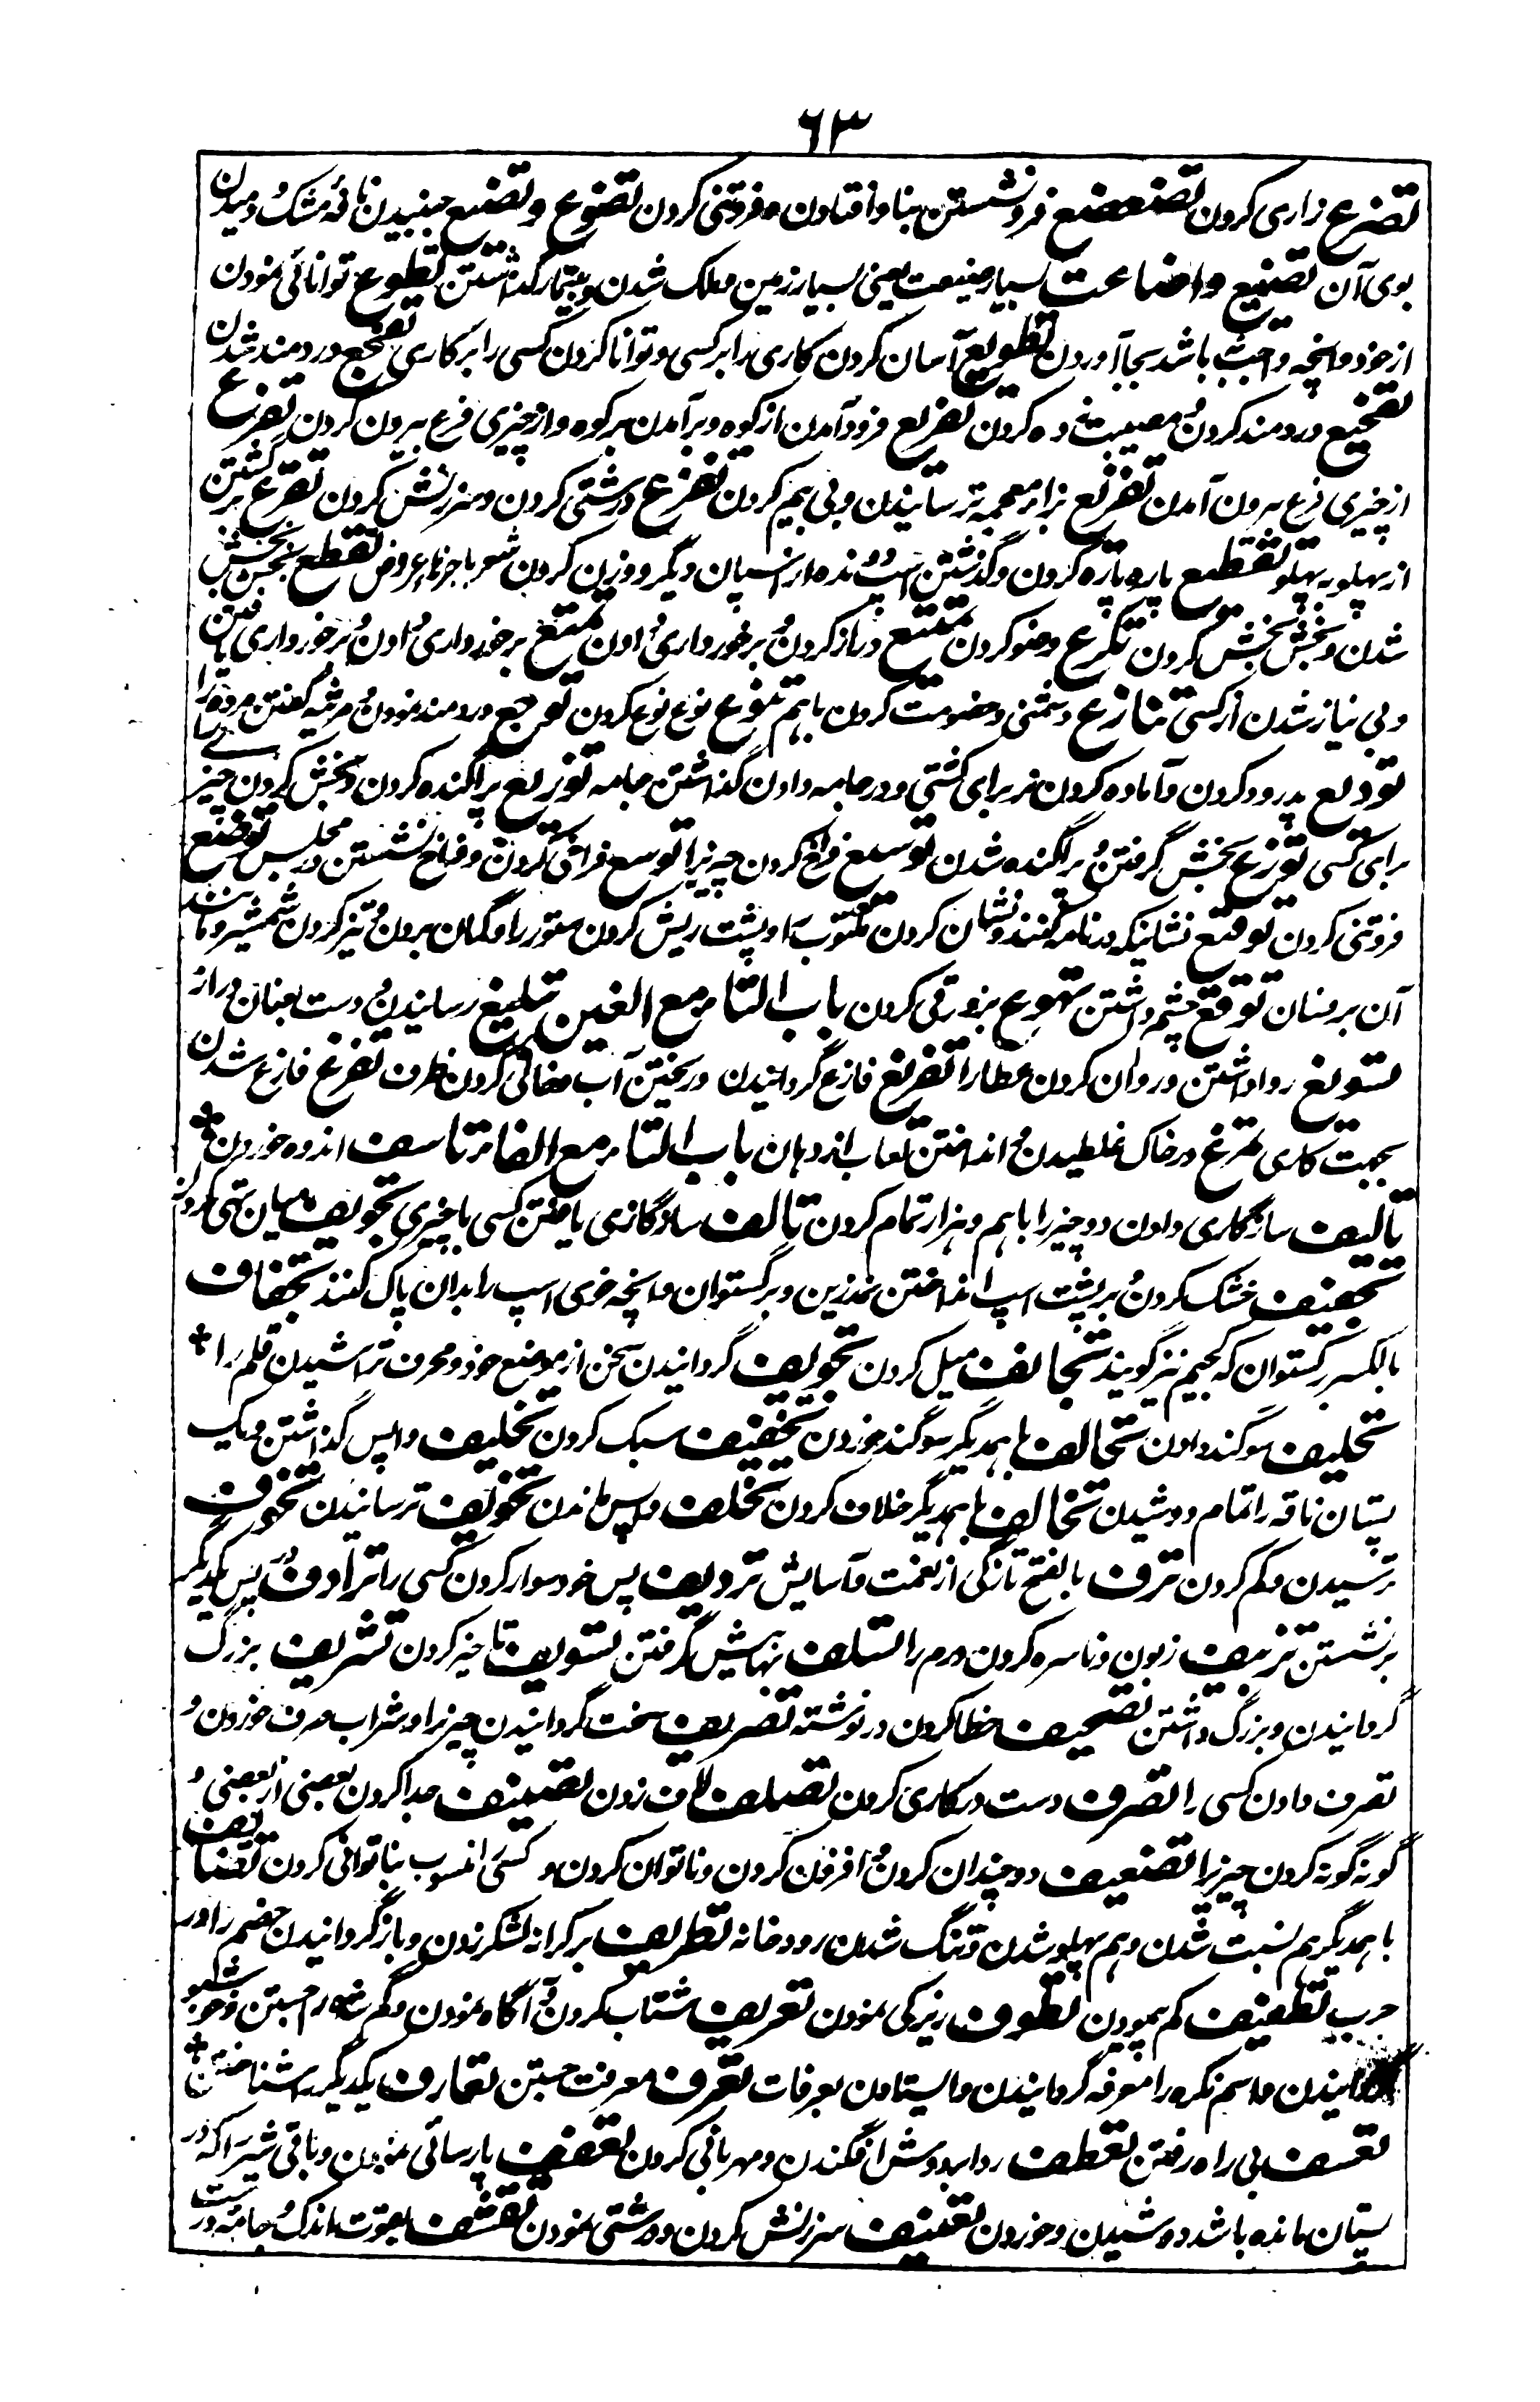 ۶۳
تضرع زاری کردن تضعضع فرو نشستن بنا و افتادن و فروتنی کردن تضوع و تضیع جنبیدن نافهٔ مشک و دمیدن
بوی آن تضییع و اضاعت بسیار ضیعت یعنی بسیار زمین و ملک شدن و بیتیمار گذاشتن تطوع توانائی نمودن
از خود و آنچه واجب باشد بجا آوردن تطویع آسان کردن کاری را بر کسی و توانا کردن کسی را بر کاری تفجع دردمند شدن
تفجیع دردمند کردن و مصیبت زده کردن تفریع فرود آمدن از کوه و برآمدن بر کوه و از چیزی فرع بیرون کردن تفرع
از چیزی فرع بیرون آمدن تفزیع بزای معجمه ترسانیدن و بی بیم کردن تقریع درشتی کردن و سرزنش کردن تقرع برگشتن
از پهلو به پهلو تقطیع پاره پاره کردن و گذشتن اسپ دونده از اسپان دیگر و وزن کردن شعر با جزای عروض تقطع بخش بخش
شدن و بخش بخش کردن تکرع وضو کردن تمتیع دراز کردن و برخورداری دادن تمتع برخورداری دادن و برخورداری یافتن
و بی نیاز شدن از کسی تنازع دشمنی و خصومت کردن باهم تنوع نوع نوع کردن توجع دردمند نمودن و مرثیه گفتن مرده را
تودیع پدرود کردن و آماده کردن نر برای کشتی و در جامه دادن گذاشتن جامه توزیع پراکنده کردن و بخش کردن چیز
برای کسی توزع بخش گرفتن و پراگنده شدن توسیع فراخ کردن چیزیرا توسع فراخی کردن و فراخ نشستن در مجلس تواضع
فروتنی کردن توقیع نشانیکه در نامه کنند و نشان کردن مکتوب را و پشت ریش کردن ستور را و گمان بردن و تیز کردن شمشیر و مانند
آن بر فسان توقع چشم داشتن تهوع بزور قی کردن باب التاء مع الغین تبلیغ رسانیدن و دست بعنان دراز
تسویغ روا داشتن و روان کردن عطا را تفریغ فارغ گردانیدن و ریختن آب و خالی کردن ظرف تفرغ فارغ شدن
بجهت کاری تمرغ در خاک غلطیدن و انداختن لعاب از دهان باب التاء مع الفاء تاسف اندوه خوردن
تالیف سازگاری دادن دو چیز را باهم و هزار تمام کردن تالف سازگاری یافتن کسی با چیزی تجویف میان تهی کردن
تجفیف خشک کردن و بر پشت اسپ انداختن نمدزین و برگستوان و آنچه خوی اسپ را بدان پاک کنند تجفاف
بالکسر برگستوان که کجیم نیز گویند تجانف میل کردن تحریف گردانیدن سخن از موضع خود و محرف تراشیدن قلم را
تحلیف سوگند دادن تحالف باهمدیگر سوگند خوردن تخفیف سبک کردن تخلیف واپس گذاشتن و یک
پستان ناقه را تمام دوشیدن تخالف باهمدیگر خلاف کردن تخلف واپس ماندن تخویف ترسانیدن تخوف
ترسیدن و کم کردن ترف بالفتح تازگی از نعمت و آسایش تردیف پس خود سوار کردن کسی را ترادف در پس یکدیگر
برنشستن تزییف زبون و ناسره کردن درم را تسلف بها پیش گرفتن تسویف تاخیر کردن تشریف بزرگ
گردانیدن و بزرگ داشتن تصحیف خطا کردن در نوشته تصریف سخت گردانیدن چیزیرا و شراب صرف خوردن و
تصرف دادن کسی را تصرف دست در کاری کردن تصلف لاف زدن تصنیف جدا کردن بعضی از بعضی و
گونه گونه کردن چیزیرا تضعیف دو چندان کردن و افزون کردن و ناتوان کردن و کسی را منسوب بناتوانی کردن تضایف
باهمدیگر هم نسبت شدن و هم پهلو شدن و تنگ شدن رودخانه تطریف بر کرانه لشکر زدن و بازگردانیدن خصم را در
حرب تطفیف کم پیمودن تظرف زیرکی نمودن تعریف شتاب کردن و آگاه نمودن و گم شده را جستن و خوشبو
گردانیدن و اسم نکره را معرفه گردانیدن و ایستادن بعرفات تعرف معرفت جستن تعارف یکدیگر را شناختن
تعسف بی راه رفتن تعطف ردا بر دوش افگندن و مهربانی کردن تعفف پارسائی نمودن و باقی شیر را که در
پستان مانده باشد دوشیدن و خوردن تعنیف سرزنش کردن و درشتی نمودن تقشف بقوت اندک و جامهٔ درشت